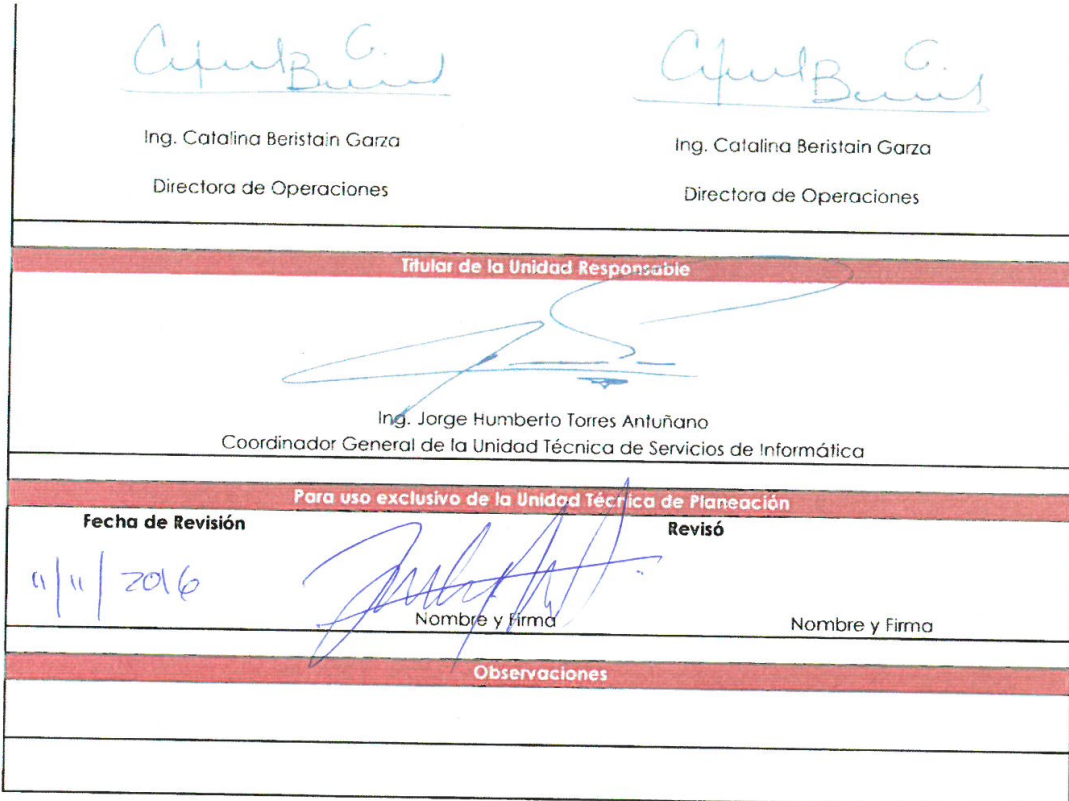 Ing. Catalina Beristain Garza
Directora de Operaciones
Ing. Catalina Beristain Garza
Directora de Operaciones
Titular de la Unidad Responsable
Ing. Jorge Humberto Torres Antuñano
Coordinador General de la Unidad Técnica de Servicios de Informática
Para uso exclusivo de la Unidad Técnica de Planeación
Fecha de Revisión
Revisó
11/11/2016
Nombre y Firma
Nombre y Firma
Observaciones